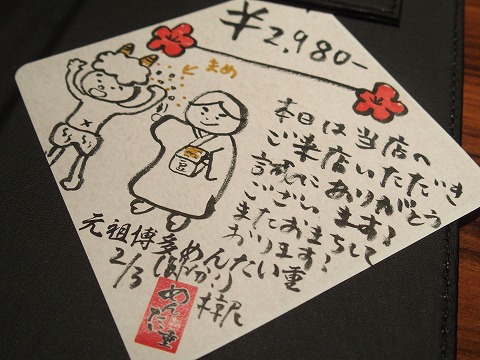 ¥2,980-
まめ
豆
本日は当店へ
ご来店いただき
誠にありがとう
ございます!
またおまちして
おります!
元祖博多めんたい重
2/3
めんたい重